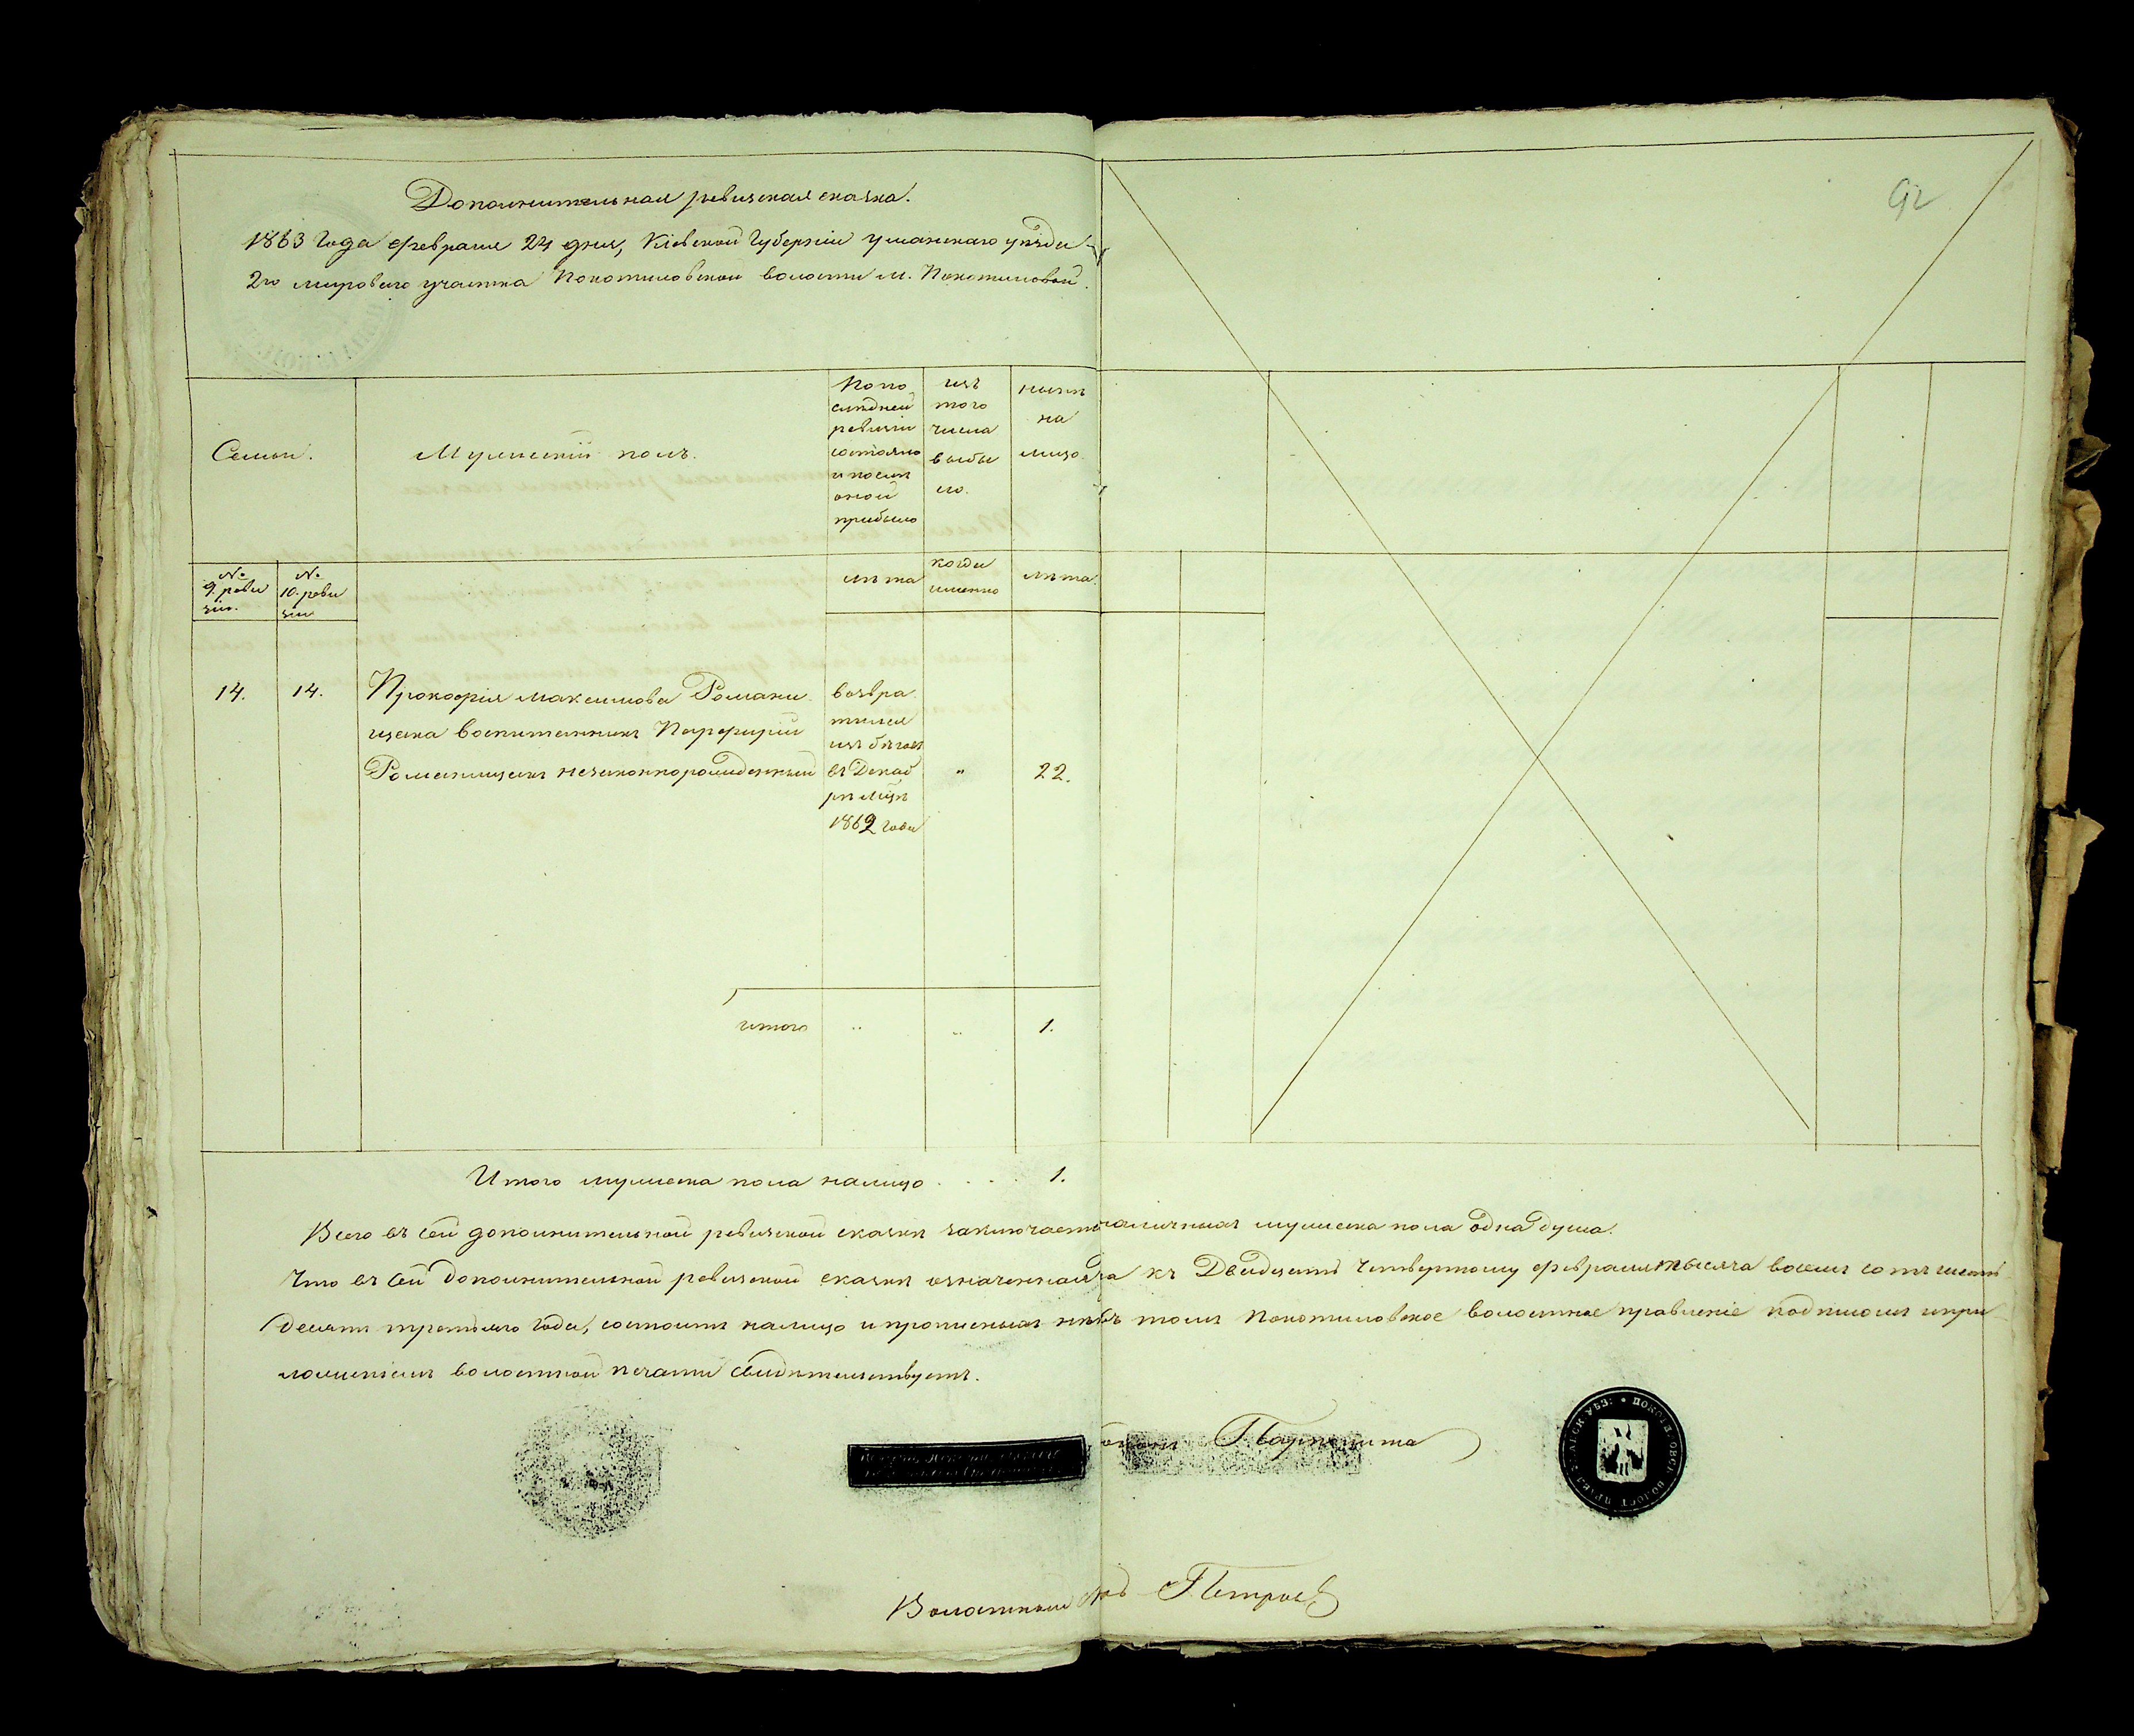 92
Дополнительная ревизская сказка.
1863 года февраля 24 дня, Кіевской губерніи Уманскаго уѣзда
2го мироваго участка Покотиловской волости м. Покотиловой.
Семьи.
Мужескій полъ.
По по
слѣдней
ревизіи
состояло
и послѣ
оной
прибыло
изъ
того
числа
выбы
ло.
нынѣ
на
лицо.
№
9. реви
зіи.
№
10. реви
зіи
лѣта
когда
именно
лѣта.
14.
14.
Прокофія Максимова Романи
щака воспитанникъ Порфирій
Романищакъ незаконнорожденный
возвра
тился
изъ бѣговъ
въ Декаб
рѣ м̃цѣ
1862 года
"
22.
итого " " 1.
Итого мужеска пола налицо . . . . 1.
Всего въ сей дополнительной ревизской сказкѣ заключается наличныхъ мужеска пола одна душа.
Что въ сей дополнительной ревизской сказкѣ означенная къ Двадцать четвертому февраля тысяча восемь сотъ шесть
десятъ третьяго года, состоитъ налицо и прописныхъ нѣтъ въ томъ Покотиловское волостное правленіе подписомъ и при
ложеніемъ волостной печати свидѣтельствуетъ.
Волостный Петровъ